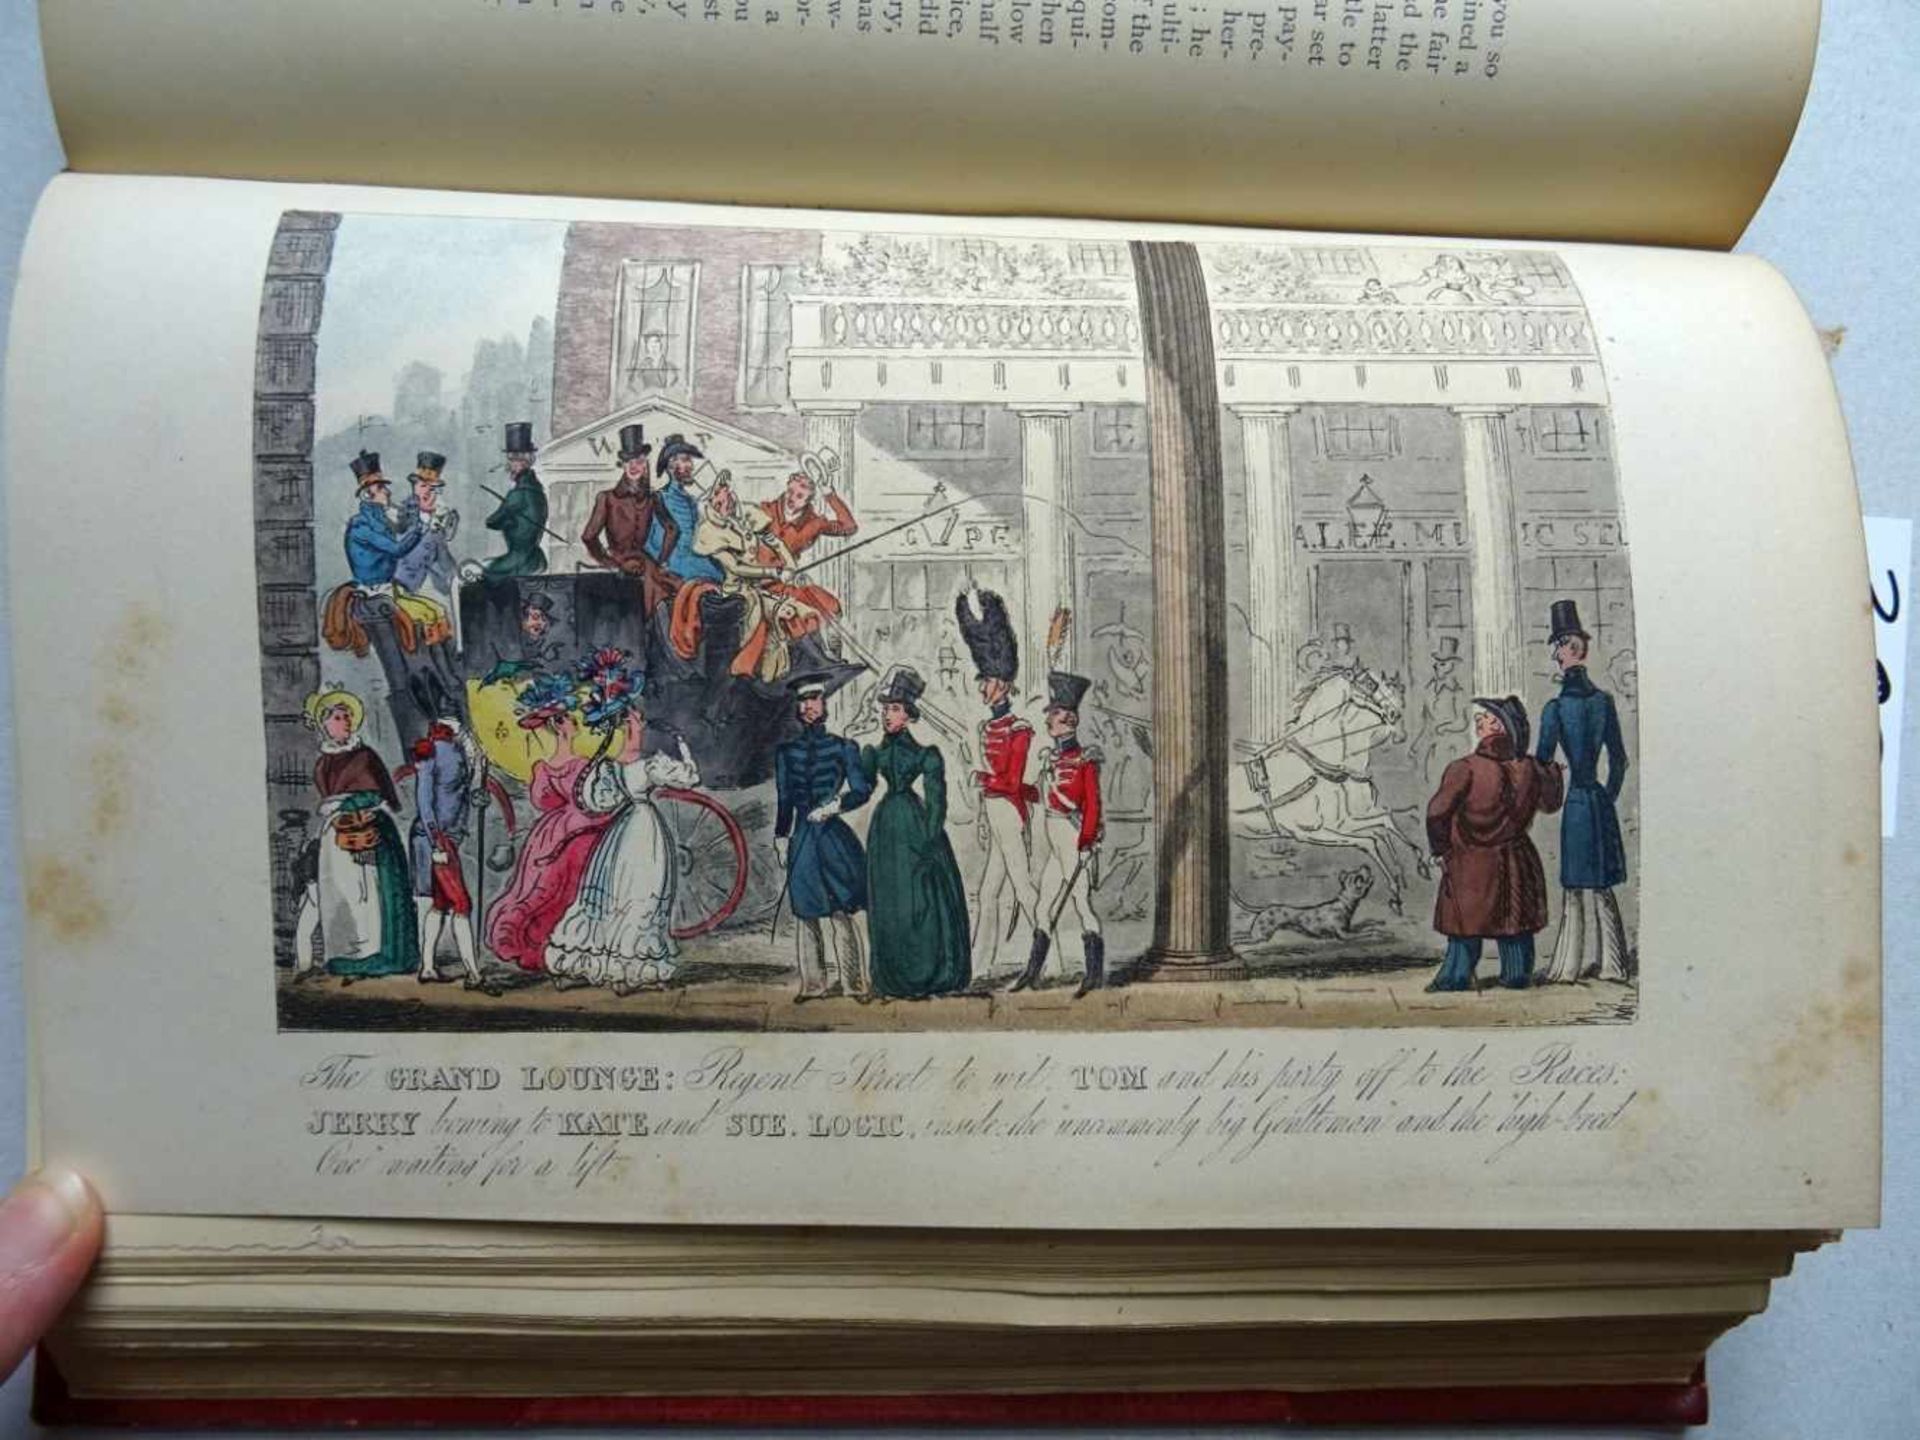 you so
ined a
ne fair
d the
latter
tle to
ar set
pay-
pre-
her-
; he
ulti-
f the
om-
qui-
hen
low
half
ice,
did
ry,
has
w-
or-
a
ou
st
y
,
e
n
-
n
W
A. LEE. MUSIC SEL
The GRAND LOUNGE: Regent Street to wit. TOM and his party off to the Races:
JERRY bowing to KATE and SUE. LOGIC, inside: the "uncommonly big Gentleman" and the "high-bred
One" waiting for a lift.